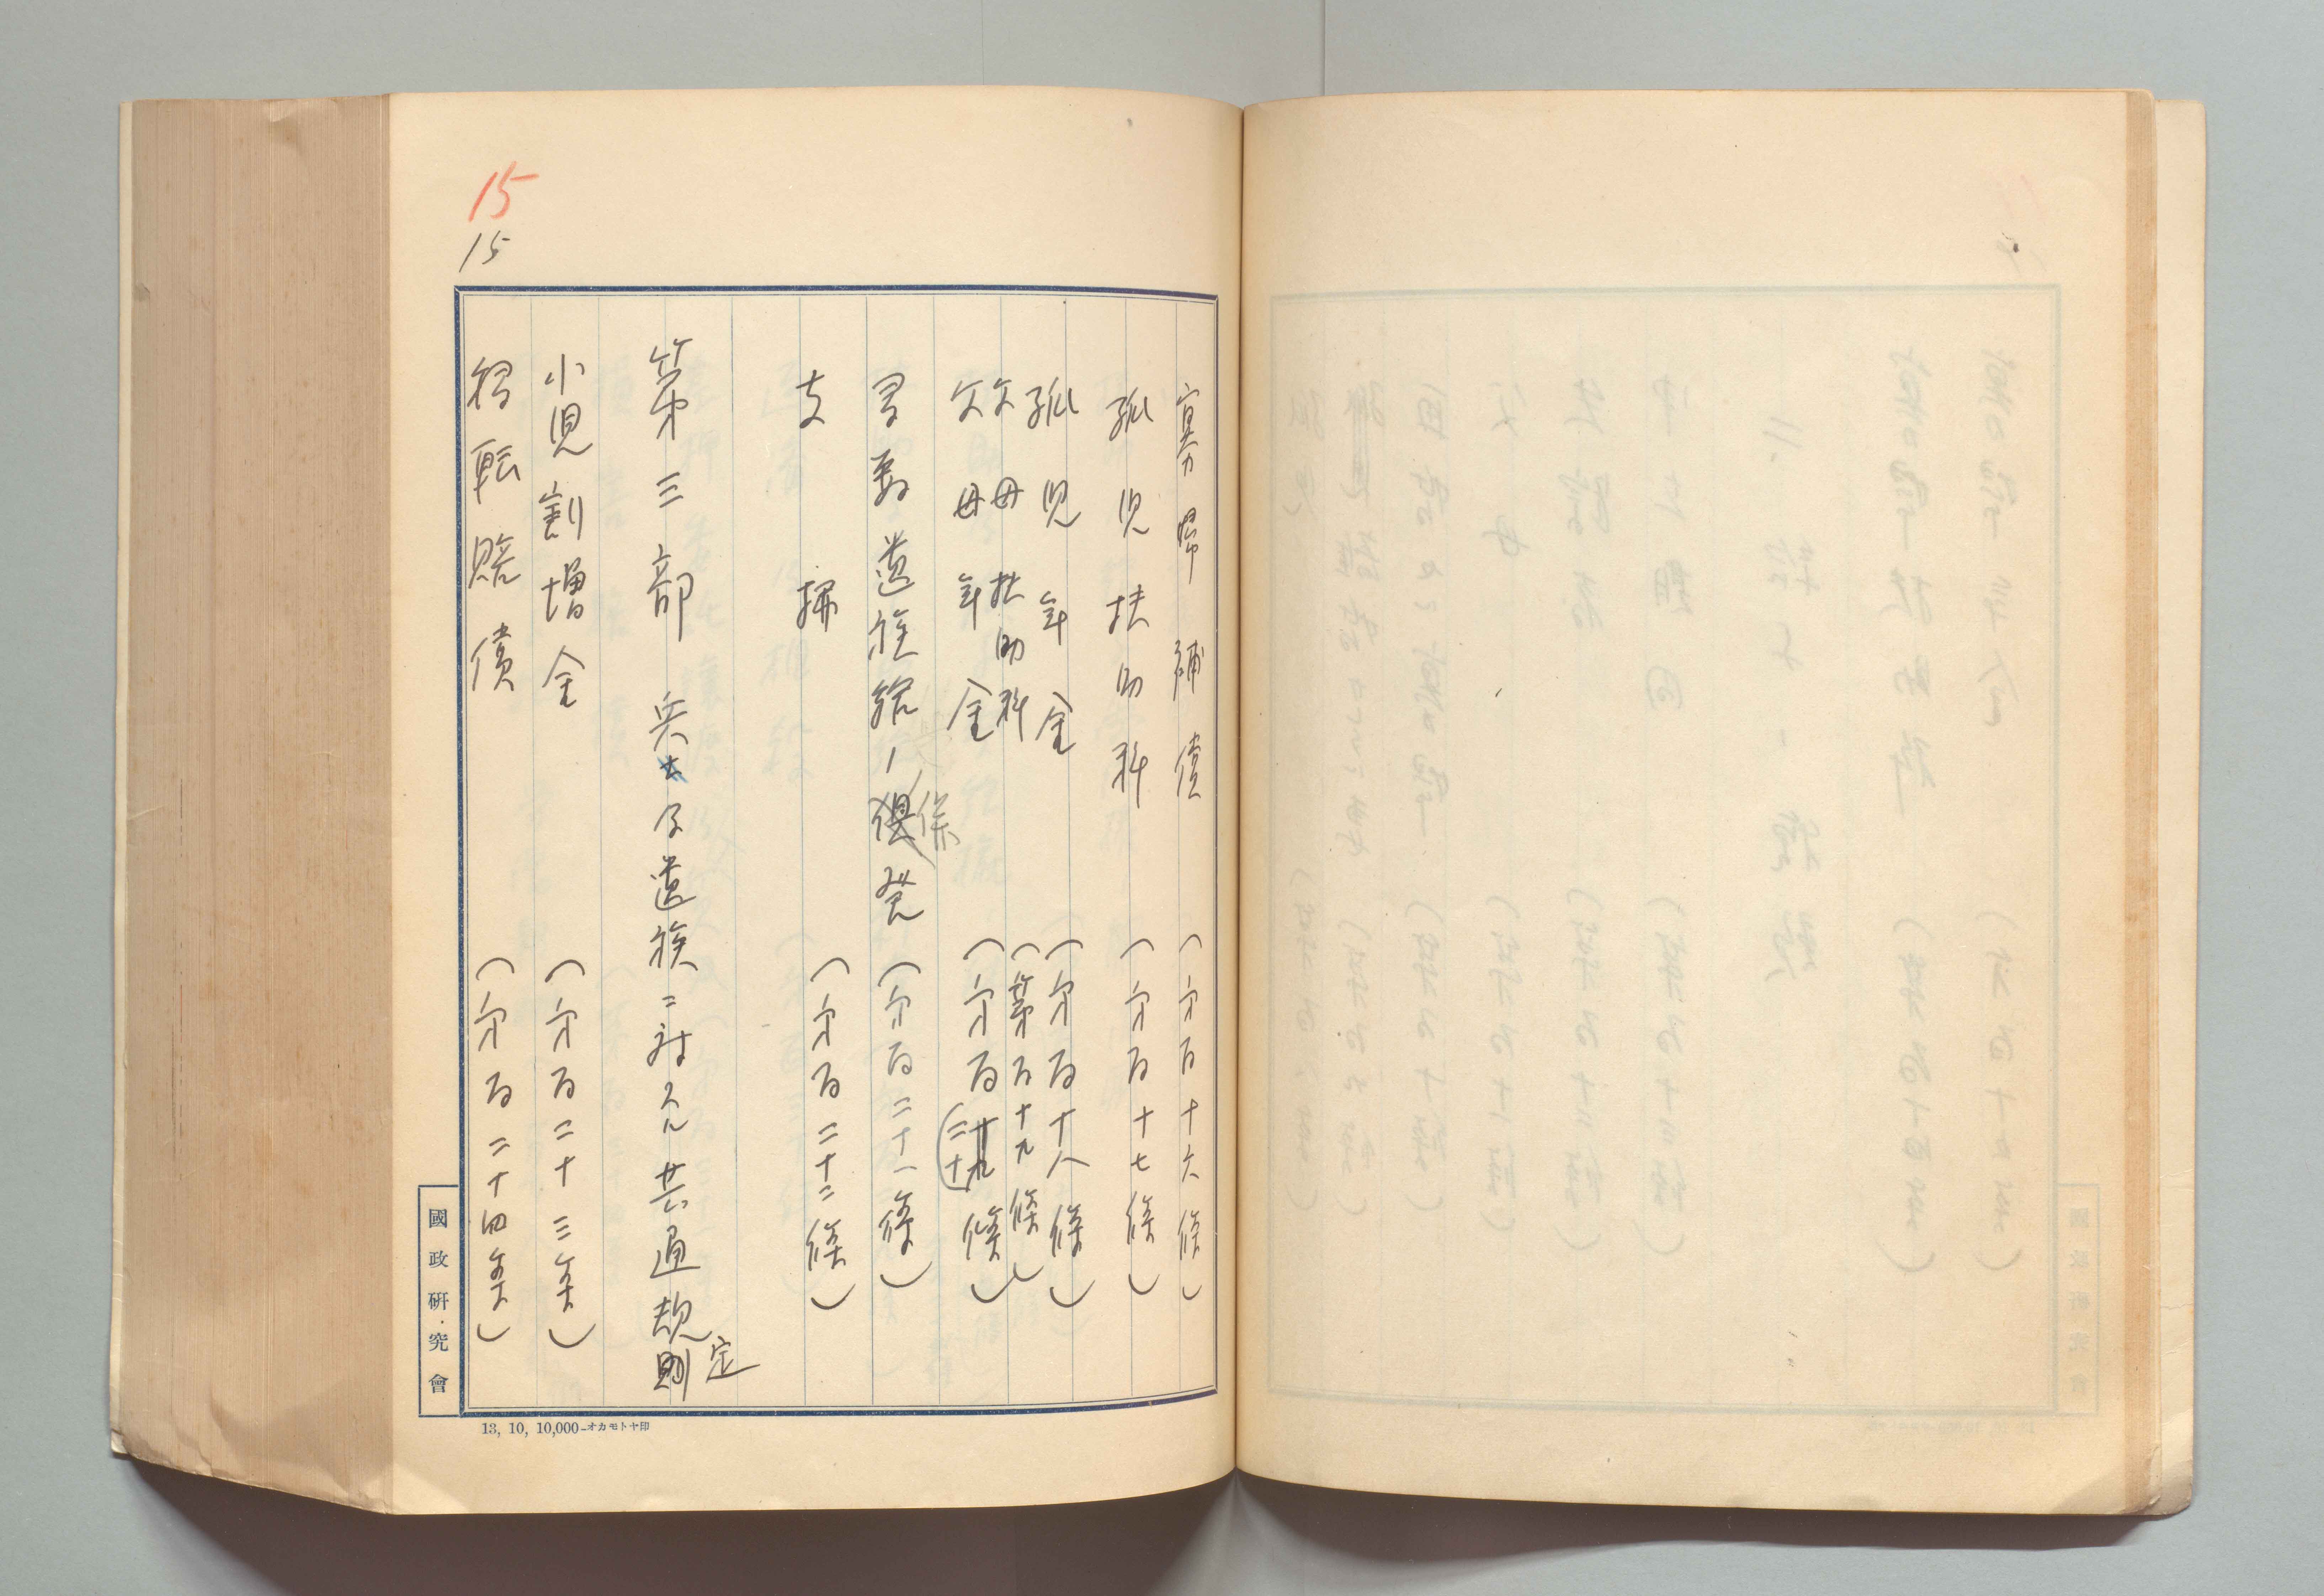 15
15
寡婦補償（第百十六條）
孤児扶助料（第百十七條）
孤児年金（第百十八條）
父母扶助料（第百十九條）
父母年金（第百二十條）
遺族給（第百二十一條）
支拂（第百二十二條）
第三部 兵士及遺族ニ対スル共通規則定
小児割増金（第百二十三条）
移転賠償（第百二十四条）
國政硏究會
13, 10, 10,000—オカモトヤ印